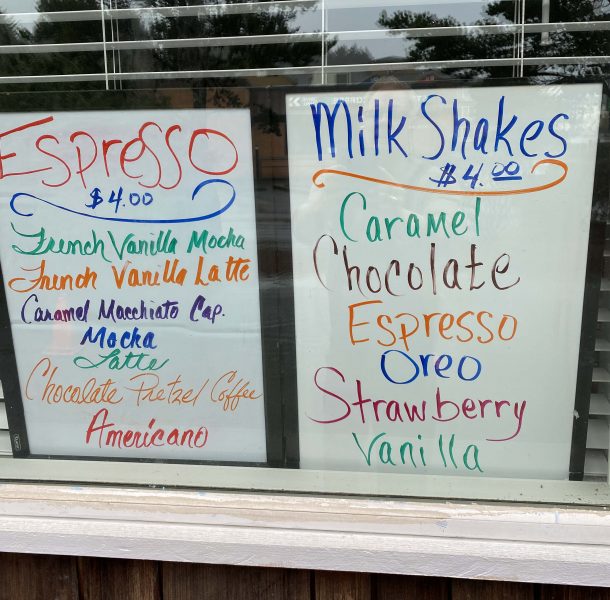 Espresso
$4.00
French Vanilla Mocha
French Vanilla Latte
Caramel Macchiato Cap.
Mocha
Latte
Chocolate Pretzel Coffee
Americano
Milk Shakes
$4.00
Caramel
Chocolate
Espresso
Oreo
Strawberry
Vanilla